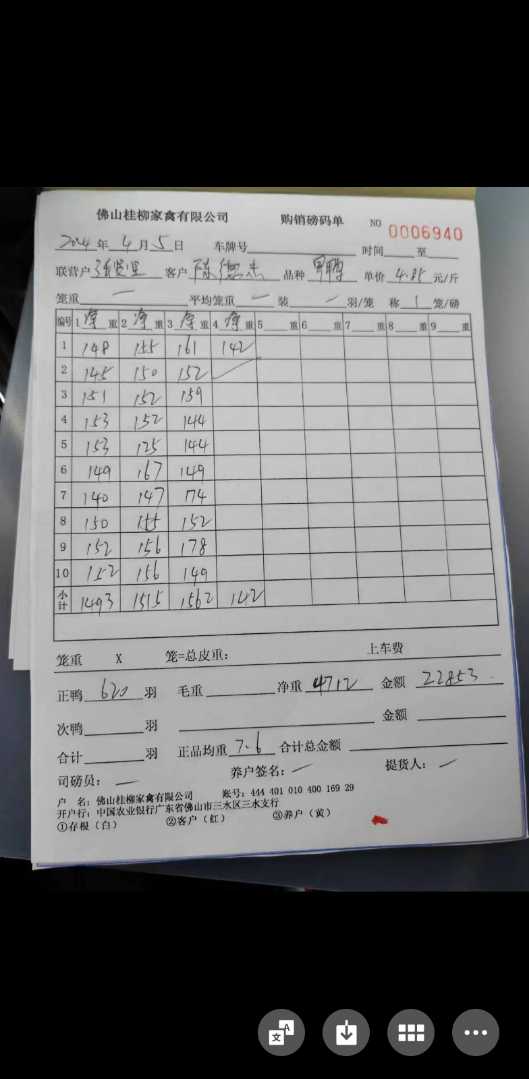 佛山桂柳家禽有限公司 购销磅码单 NO 0006940
2024年 4月 5日 车牌号 时间 至
联营户 客户 陈德杰 品种 单价 4.85 元/斤
笼重 — 平均笼重 — 装 — 羽/笼 称 1 笼/磅
编号 1 净 重 2 净 重 3 净 重 4 净 重 5 重 6 重 7 重 8 重 9 重
1 148 155 161 142
2 145 150 152
3 151 152 159
4 153 152 144
5 153 125 144
6 149 167 149
7 140 147 174
8 150 155 152
9 152 156 178
10 152 156 149
小计 1493 1515 1562 142
笼重 X 笼=总皮重: 上车费
正鸭 620 羽 毛重 净重 4712 金额 22853.
次鸭 羽 金额
合计 羽 正品均重 7.6 合计总金额
司磅员: — 养户签名: — 提货人: —
户 名: 佛山桂柳家禽有限公司 账号: 444 401 010 400 169 29
开户行: 中国农业银行广东省佛山市三水区三水支行
①存根(白) ②客户(红) ③养户(黄)